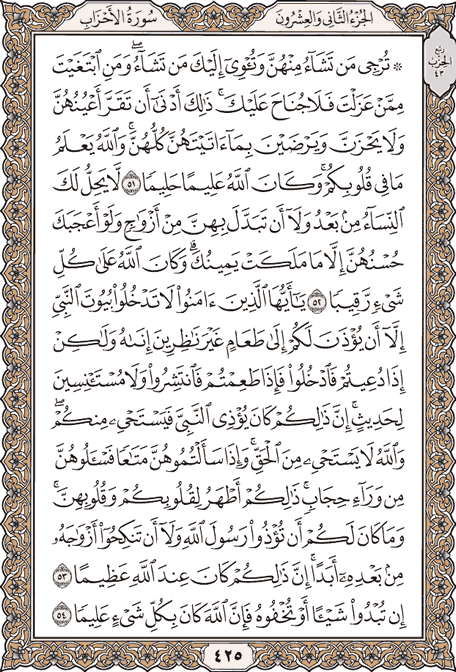 الجزء الثاني والعشرون
سورة الأحزاب
ربع
الحزب
٤٣
۞ تُرْجِى مَن تَشَآءُ مِنْهُنَّ وَتُـْٔوِىٓ إِلَيْكَ مَن تَشَآءُۖ وَمَنِ ٱبْتَغَيْتَ
مِمَّنْ عَزَلْتَ فَلَا جُنَاحَ عَلَيْكَۚ ذَٰلِكَ أَدْنَىٰٓ أَن تَقَرَّ أَعْيُنُهُنَّ
وَلَا يَحْزَنَّ وَيَرْضَيْنَ بِمَآ ءَاتَيْتَهُنَّ كُلُّهُنَّۚ وَٱللَّهُ يَعْلَمُ
مَا فِى قُلُوبِكُمْۚ وَكَانَ ٱللَّهُ عَلِيمًا حَلِيمًا ٥١ لَّا يَحِلُّ لَكَ
ٱلنِّسَآءُ مِنۢ بَعْدُ وَلَآ أَن تَبَدَّلَ بِهِنَّ مِنْ أَزْوَٰجٍ وَلَوْ أَعْجَبَكَ
حُسْنُهُنَّ إِلَّا مَا مَلَكَتْ يَمِينُكَۗ وَكَانَ ٱللَّهُ عَلَىٰ كُلِّ
شَىْءٍ رَّقِيبًا ٥٢ يَٰٓأَيُّهَا ٱلَّذِينَ ءَامَنُوا۟ لَا تَدْخُلُوا۟ بُيُوتَ ٱلنَّبِىِّ
إِلَّآ أَن يُؤْذَنَ لَكُمْ إِلَىٰ طَعَامٍ غَيْرَ نَٰظِرِينَ إِنَىٰهُ وَلَٰكِنْ
إِذَا دُعِيتُمْ فَٱدْخُلُوا۟ فَإِذَا طَعِمْتُمْ فَٱنتَشِرُوا۟ وَلَا مُسْتَـْٔنِسِينَ
لِحَدِيثٍۚ إِنَّ ذَٰلِكُمْ كَانَ يُؤْذِى ٱلنَّبِىَّ فَيَسْتَحْىِۦ مِنكُمْۖ
وَٱللَّهُ لَا يَسْتَحْىِۦ مِنَ ٱلْحَقِّۚ وَإِذَا سَأَلْتُمُوهُنَّ مَتَٰعًا فَسْـَٔلُوهُنَّ
مِن وَرَآءِ حِجَابٍۚ ذَٰلِكُمْ أَطْهَرُ لِقُلُوبِكُمْ وَقُلُوبِهِنَّۚ
وَمَا كَانَ لَكُمْ أَن تُؤْذُوا۟ رَسُولَ ٱللَّهِ وَلَآ أَن تَنكِحُوٓا۟ أَزْوَٰجَهُۥ
مِنۢ بَعْدِهِۦٓ أَبَدًاۚ إِنَّ ذَٰلِكُمْ كَانَ عِندَ ٱللَّهِ عَظِيمًا ٥٣
إِن تُبْدُوا۟ شَيْـًٔا أَوْ تُخْفُوهُ فَإِنَّ ٱللَّهَ كَانَ بِكُلِّ شَىْءٍ عَلِيمًا ٥٤
٤٢٥